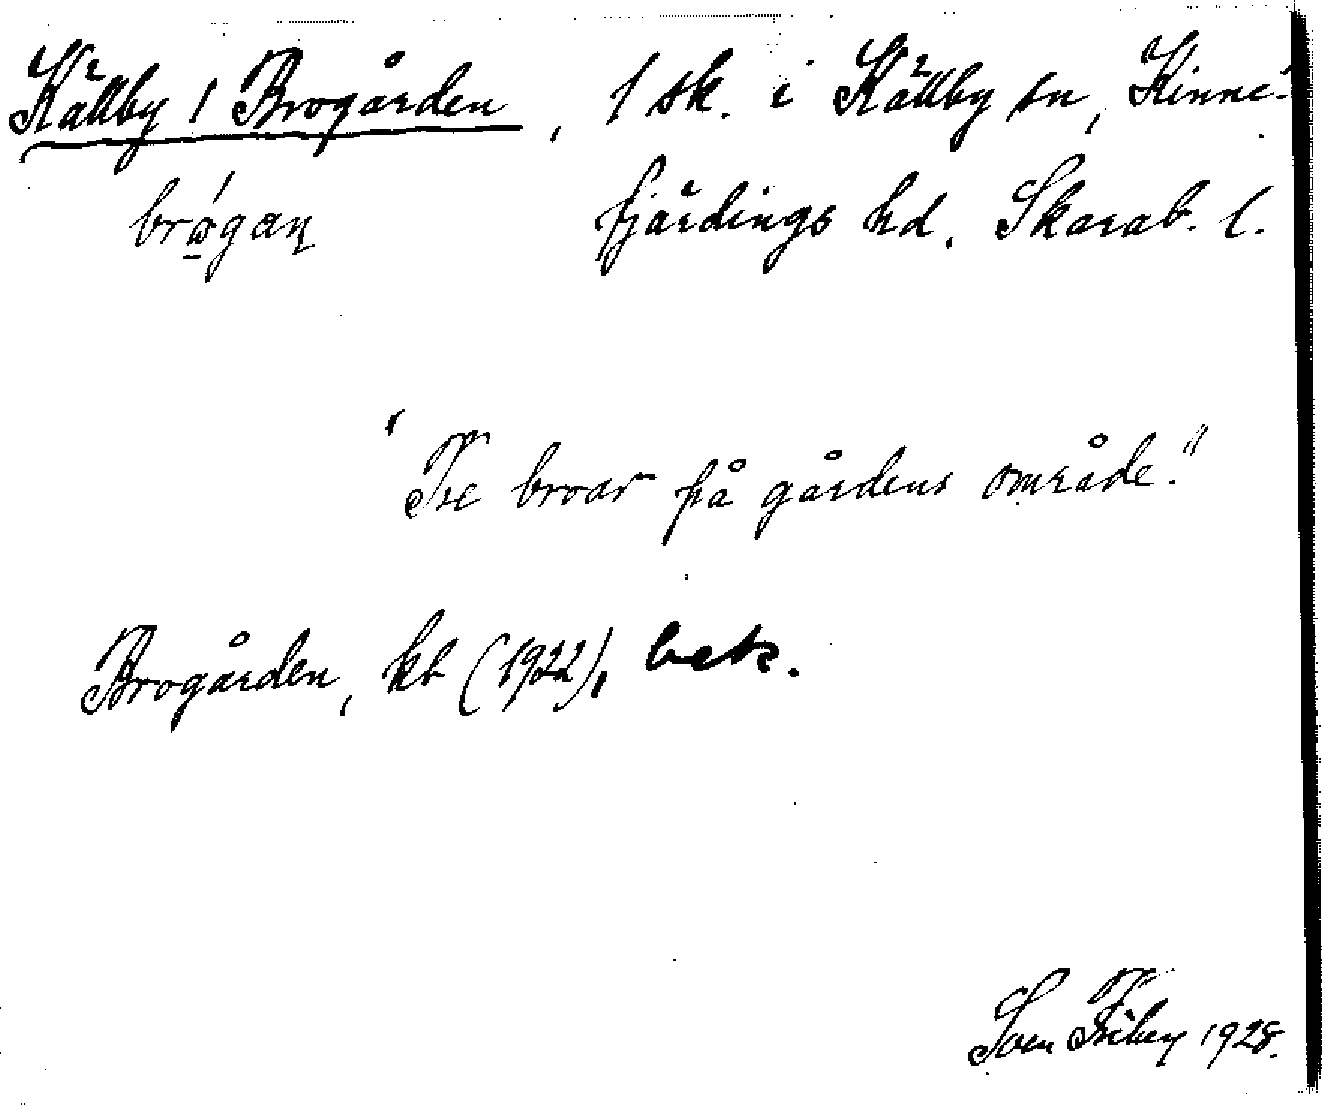 Källby 1 Brogården, 1 sk. i Källby sn, Kinne-
brógaṇ fjärdings hd. Skarab. l.
"Tre broar på gårdens område."
Brogården, kb (1922), bek.
Sven 1928.